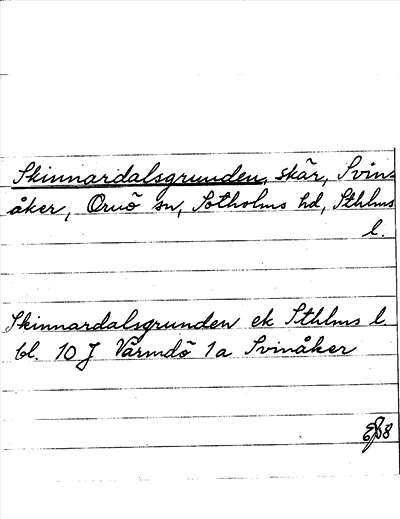 Skinnardalsgrunden, skär, Svin=
åker, Ornö sn, Sotholms hd, Sthlms
l.
Skinnardalsgrunden ek Sthlms l.
bl. 10 J Värmdö 1a Svinåker